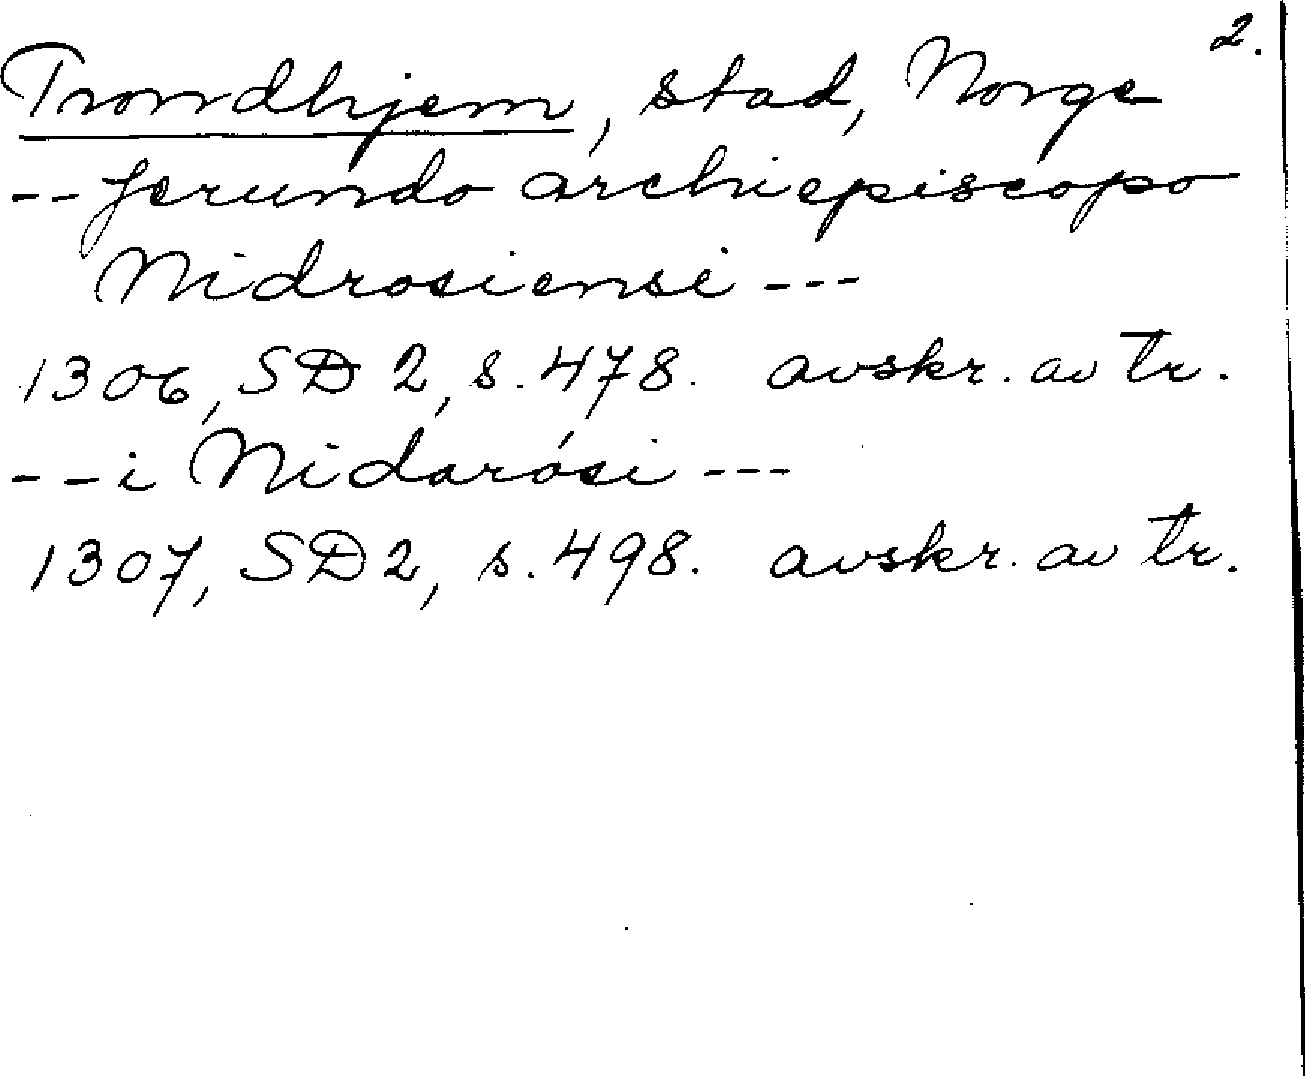 2.
Trondhjem, stad, Norge
-- Jerundo archiepiscopo
Nidrosiensi ---
1306, SD 2, s. 478. avskr. av tr.
-- i Nidarósi ---
1307, SD 2, s. 498. avskr. av tr.